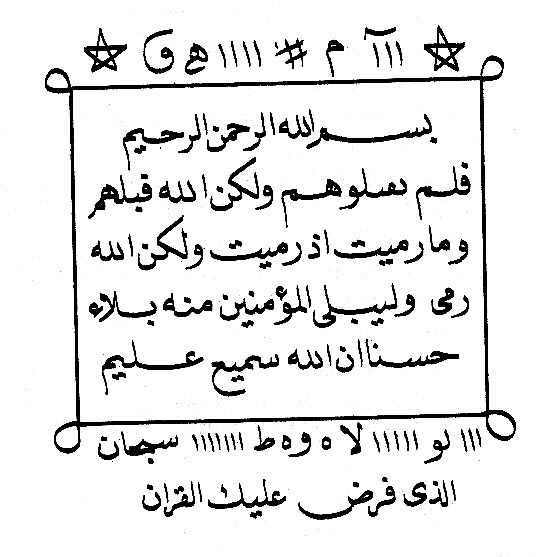 ☆ ااا آ م # اااا ﻫ و ☆
بسم الله الرحمن الرحيم
فلم تقتلوهم ولكن الله قتلهم
وما رميت اذ رميت ولكن الله
رمى وليبلى المؤمنين منه بلاء
حسنا ان الله سميع عليم
ااا لو ااااا لا ه و ه ط ااااااا سبحان
الذى فرض عليك القران